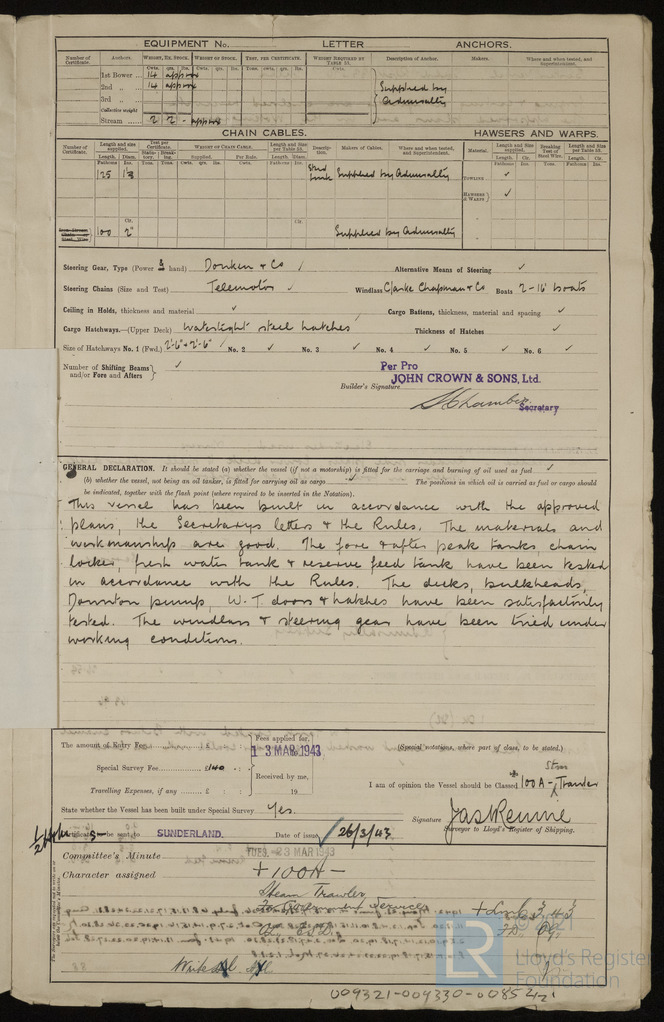 EQUIPMENT No. LETTER ANCHORS.
Number of Certificate. Anchors. WEIGHT, EX. STOCK. WEIGHT OF STOCK. TEST, PER CERTIFICATE. WEIGHT REQUIRED BY TABLE 53. Description of Anchor. Makers. Where and when tested, and Superintendent.
Cwts. qrs. lbs. Cwts. qrs. lbs. Tons. cwts. qrs. lbs. Cwts.
1st Bower 14 approx
2nd „ 14 approx Supplied by
3rd „ Admiralty
Collective weight
Stream 2 2 - approx
CHAIN CABLES. HAWSERS AND WARPS.
Number of Certificate. Length and size supplied. Test per Certificate. WEIGHT OF CHAIN CABLE. Length and Size per Table 53. Description. Makers of Cables. Where and when tested, and Superintendent. Material. Length and Size supplied. Breaking Test of Steel Wire. Length and Size per Table 53.
Length. Diam. Statutory. Breaking. Supplied. Per Rule. Length. Diam. Length. Cir. Length. Cir.
Fathoms Ins. Tons. Tons. Cwts. qrs. lbs. Cwts. Fathoms Ins. Fathoms Ins. Tons. Fathoms Ins.
125 Stud link Supplied by Admiralty TOWLINE ✓
HAWSERS & WARPS ✓
Cir. Cir.
100 2" Supplied by Admiralty
Steering Gear, Type (Power & hand) Donkin & Co Alternative Means of Steering ✓
Steering Chains (Size and Test) Telemotor Windlass Clarke Chapman & Co Boats 2-16' boats
Ceiling in Holds, thickness and material ✓ Cargo Battens, thickness, material and spacing ✓
Cargo Hatchways.—(Upper Deck) Watertight steel hatches Thickness of Hatches ✓
Size of Hatchways No. 1 (Fwd.) 2'-6" x 2'-6" No. 2 ✓ No. 3 ✓ No. 4 ✓ No. 5 ✓ No. 6 ✓
Number of Shifting Beams and/or Fore and Afters } ✓
Per Pro
JOHN CROWN & SONS, Ltd.
Builder's Signature
Secretary
GENERAL DECLARATION. It should be stated (a) whether the vessel (if not a motorship) is fitted for the carriage and burning of oil used as fuel ✓
(b) whether the vessel, not being an oil tanker, is fitted for carrying oil as cargo ✓ The positions in which oil is carried as fuel or cargo should
be indicated, together with the flash point (where required to be inserted in the Notation).
This vessel has been built in accordance with the approved
plans, the Secretarys letters & the Rules. The materials and
workmanship are good. The fore & after peak tanks, chain
locker, fresh water tank & reserve feed tank have been tested
in accordance with the Rules. The decks, bulkheads,
Downton pump, W.T. doors & hatches have been satisfactorily
tested. The windlass & steering gear have been tried under
working conditions.
The amount of Entry Fee £ : : Fees applied for,
13 MAR 1943 (Special notations, where part of class, to be stated.)
Special Survey Fee £ : : Received by me,
I am of opinion the Vessel should be Classed +100A- Stm Trawler
Travelling Expenses, if any £ : : 19
State whether the Vessel has been built under Special Survey Yes. Signature
Surveyor to Lloyd's Register of Shipping.
Certificate to be sent to SUNDERLAND. Date of issue 26/3/43
Committee's Minute TUES. 23 MAR 1943
Character assigned +100A-
Steam Trawler
3,43
© 2021
LR
Lloyd's Register
Foundation